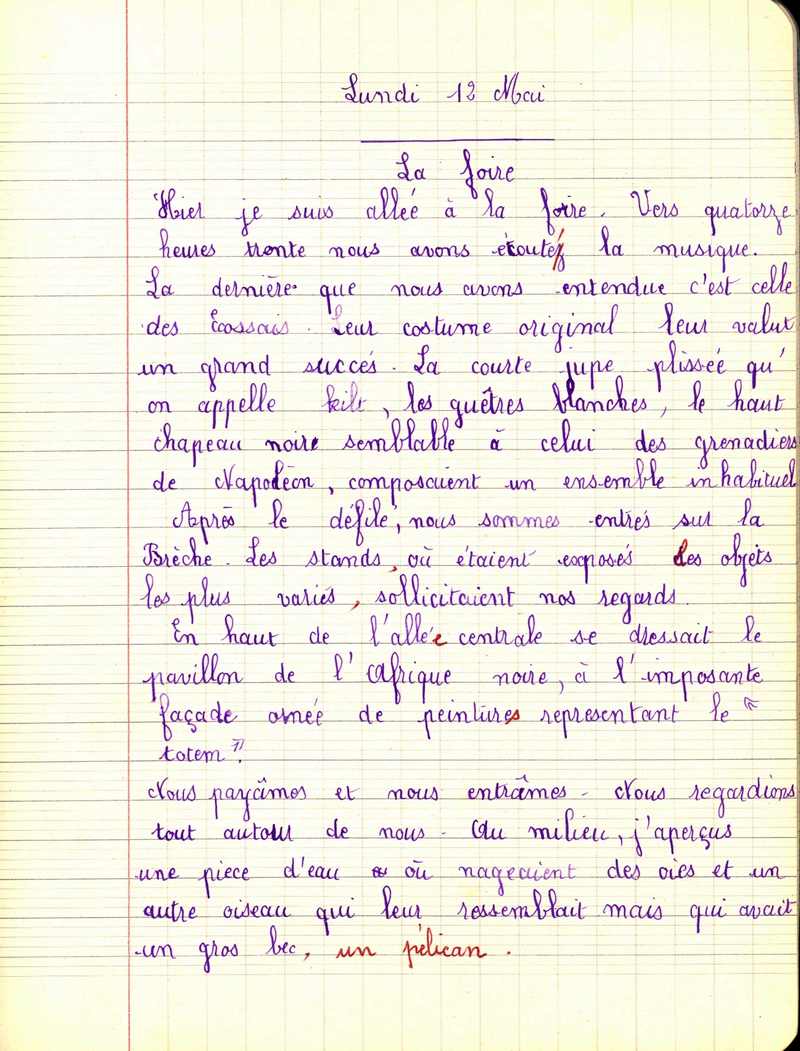 Lundi 12 Mai
La foire
Hier je suis allée à la foire. Vers quatorze
heures trente nous avons écouté la musique.
La dernière que nous avons entendue c'est celle
des Écossais. Leur costume original leur valut
un grand succés. La courte jupe plissée qu'
on appelle kilt, les guêtres blanches, le haut
chapeau noire semblable à celui des grenadiers
de Napoléon, composaient un ensemble inhabituel
Après le défilé, nous sommes entrés sur la
Brèche. Les stands, où étaient exposés des objets
les plus variés, sollicitaient nos regards.
En haut de l'allée centrale se dressait le
pavillon de l'Afrique noire, à l'imposante
façade ornée de peintures representant le "
totem".
Nous payâmes et nous entrâmes. Nous regardions
tout autour de nous. Au milieu, j'aperçus
une piece d'eau où nageaient des oies et un
autre oiseau qui leur ressemblait mais qui avait
un gros bec, un pélican.